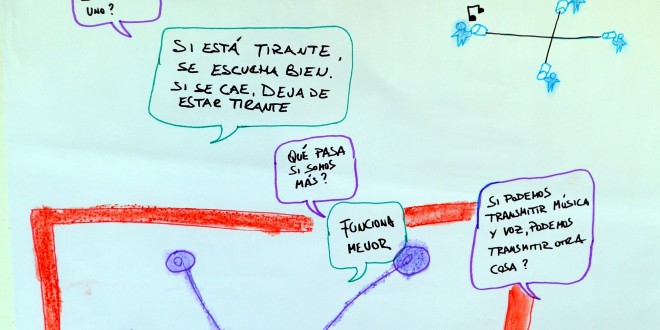 UNO?
SI ESTÁ TIRANTE,
SE ESCUCHA BIEN.
SI SE CAE, DEJA DE
ESTAR TIRANTE
QUÉ PASA
SI SOMOS
MÁS?
FUNCIONA
MEJOR
SI PODEMOS
TRANSMITIR MÚSICA
Y VOZ, PODEMOS
TRANSMITIR OTRA
COSA?